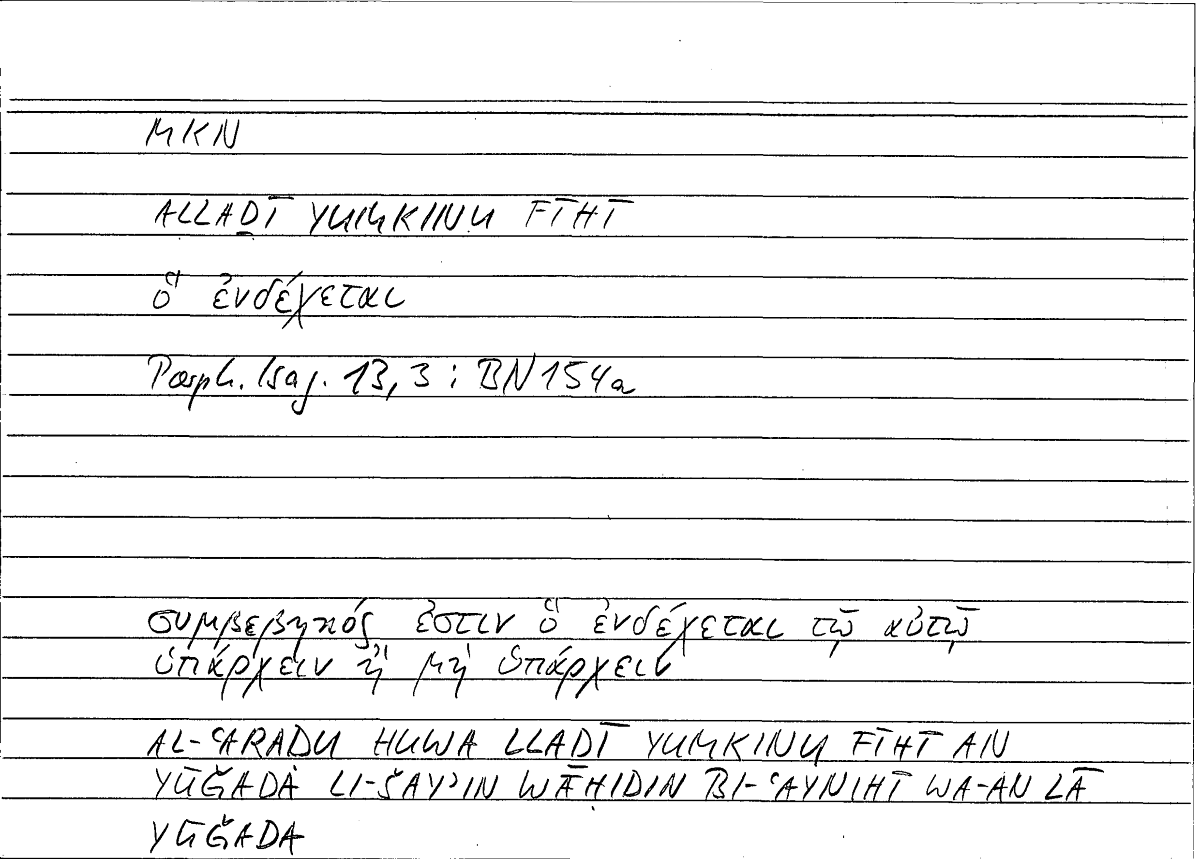 MKN
ALLAḎĪ YUMKINU FĪHĪ
ὃ ἐνδέχεται
Porph. Isag. 13,3 : BN 154a
συμβεβηκός ἐστιν ὃ ἐνδέχεται τῷ αὐτῷ
ὑπάρχειν ἢ μὴ ὑπάρχειν
AL-ʿARADU HUWA LLADĪ YUMKINU FĪHĪ AN
YŪǦADA LI-ŠAYʾIN WĀḤIDIN BI-ʿAYNIHĪ WA-AN LĀ
YŪǦADA